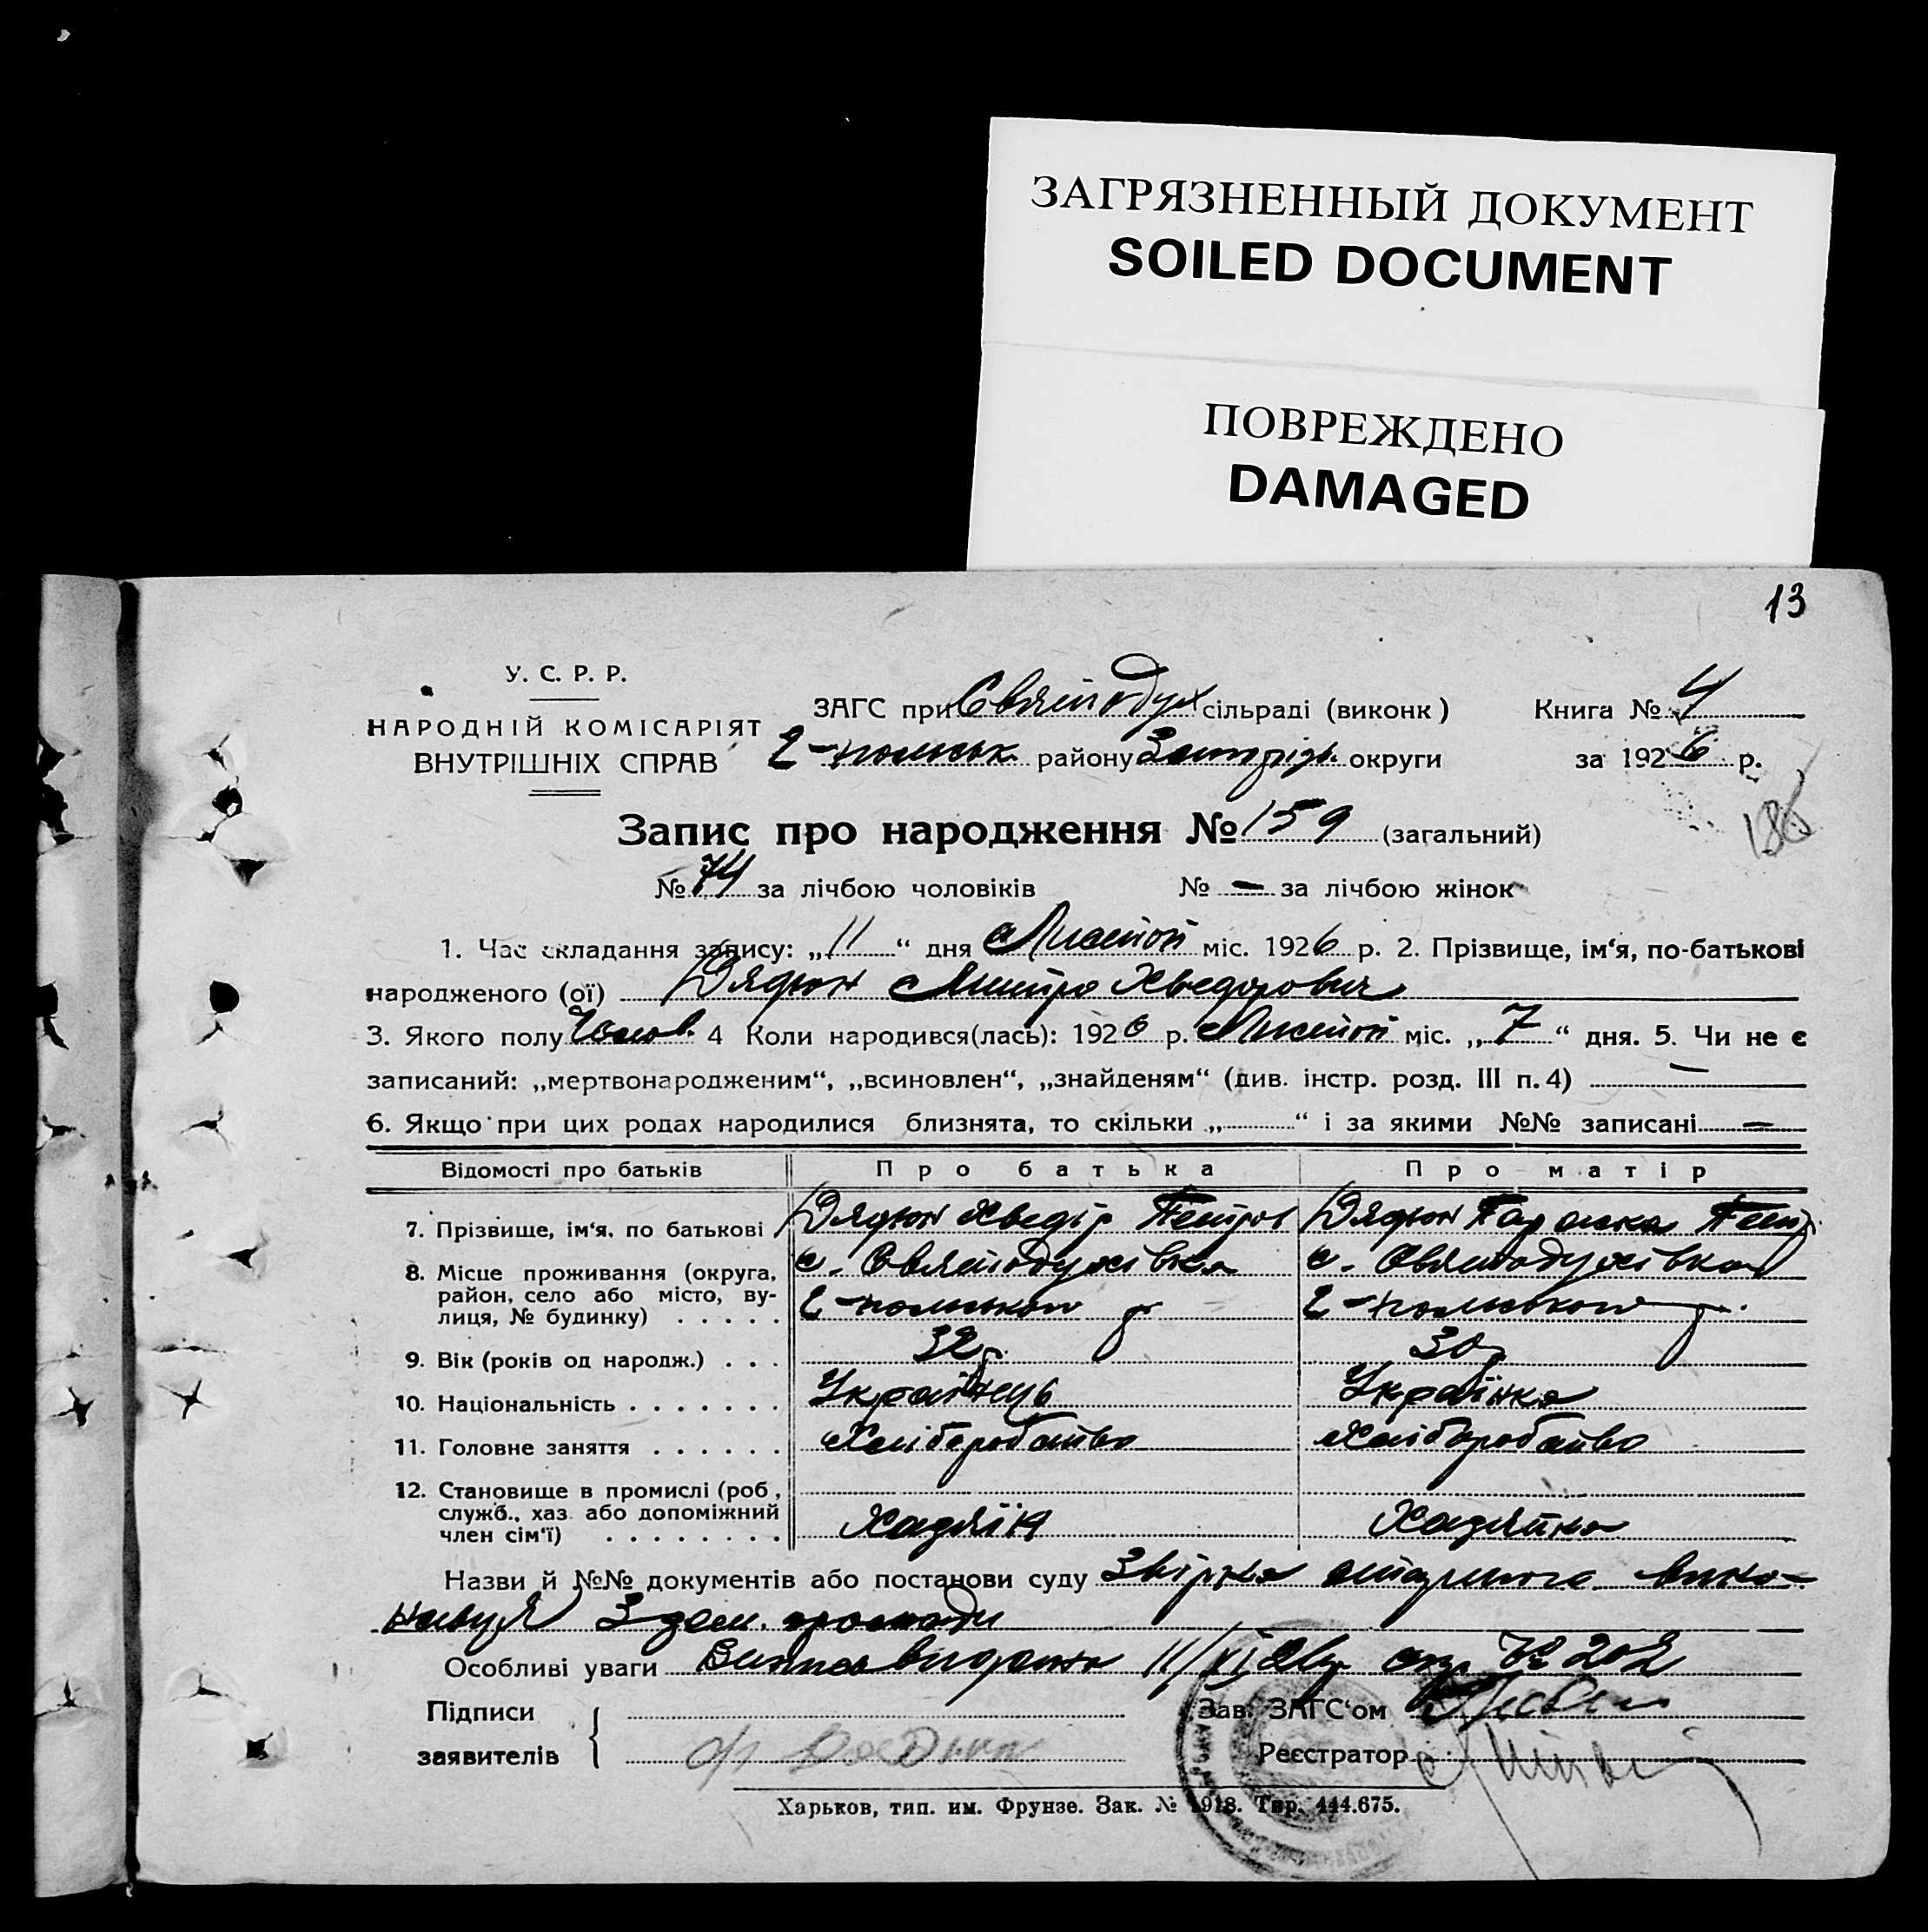 ЗАГРЯЗНЕННЫЙ ДОКУМЕНТ
SOILED DOCUMENT
ПОВРЕЖДЕНО
DAMAGED
13
У. С. Р. Р.
НАРОДНІЙ КОМІСАРІЯТ
ВНУТРІШНІХ СПРАВ
ЗАГС при Святодух сільраді (виконк) Книга № 4
району Запоріз. округи за 1926 р.
186
Запис про народження № 159 (загальний)
№ 74 за лічбою чоловіків № — за лічбою жінок
1. Час складання запису: „11“ дня Листоп міс. 1926 р. 2. Прізвище, ім‘я, по-батькові
народженого (ої) Дядюн Митро Хведорович
3. Якого полу Чолов. 4 Коли народився(лась): 1926 р. Листоп міс. „7“ дня. 5. Чи не є
записаний: „мертвонародженим“, „всиновлен“, „знайденям“ (див. інстр. розд. III п. 4) —
6. Якщо при цих родах народилися близнята, то скільки „ “ і за якими №№ записані —
Відомості про батьків Про батька Про матір
7. Прізвище, ім‘я, по батькові Дядюн Хведір Петров Дядюн Параска Петр.
8. Місце проживання (округа, с. Святодухівка с. Святодухівка
район, село або місто, ву-
лиця, № будинку) . . . . .
9. Вік (років од народж.) . . . 32 р. 30 р.
10. Національність . . . . . . . Українець Українка
11. Головне заняття . . . . . . Хліборобство Хліборобство
12. Становище в промислі (роб,
служб., хаз. або допоміжний
член сім‘ї) . . . . . . . . Хазяїн Хазяйка
Назви й №№ документів або постанови суду Звірка
громади
Особливі уваги Випись видана 11/XI 26 р. № 202
Підписи Зав. ЗАГС‘ом
заявителів Реєстратор
Харьков, тип. им. Фрунзе. Зак. № 1918. Тир. 444.675.